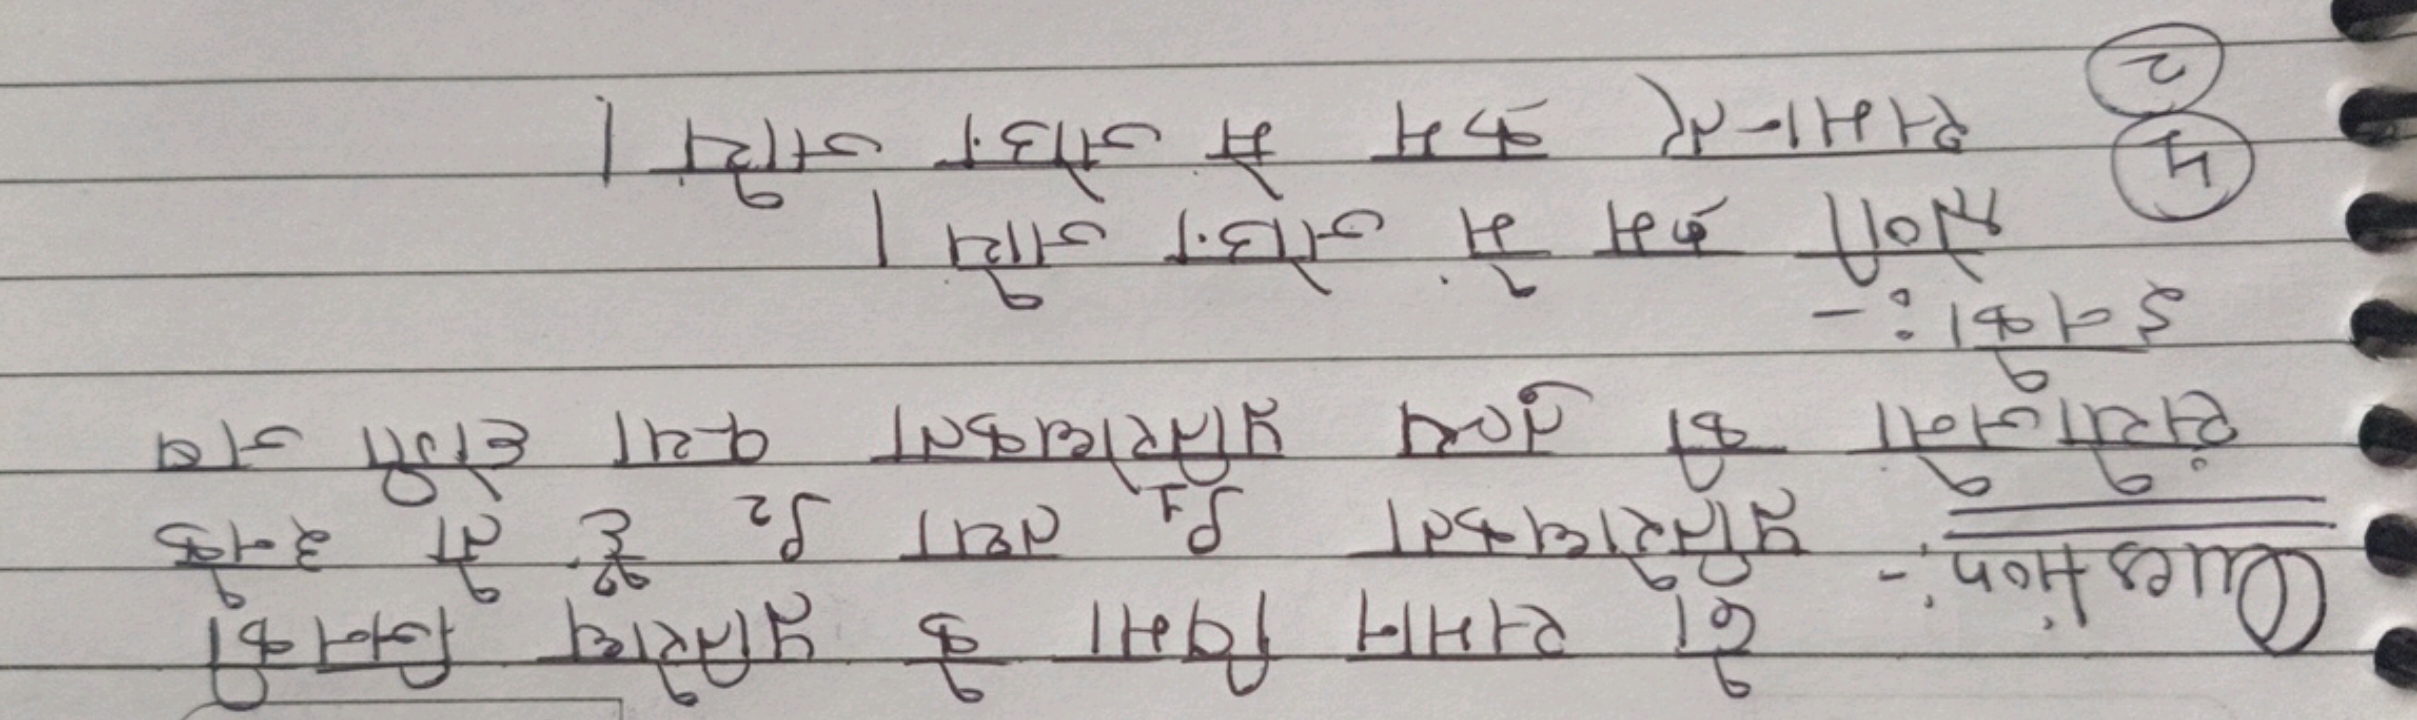 Question:- दो समान विमा के प्रतिरोध जिनकी
प्रतिरोधकता ρ1 तथा ρ2 हैं। तो उनके
संयोजन की तुल्य प्रतिरोधकता क्या होगी जब
इनको :-
1 श्रेणी क्रम में जोड़ा जाये |
2 समान्तर क्रम में जोड़ा जाये |